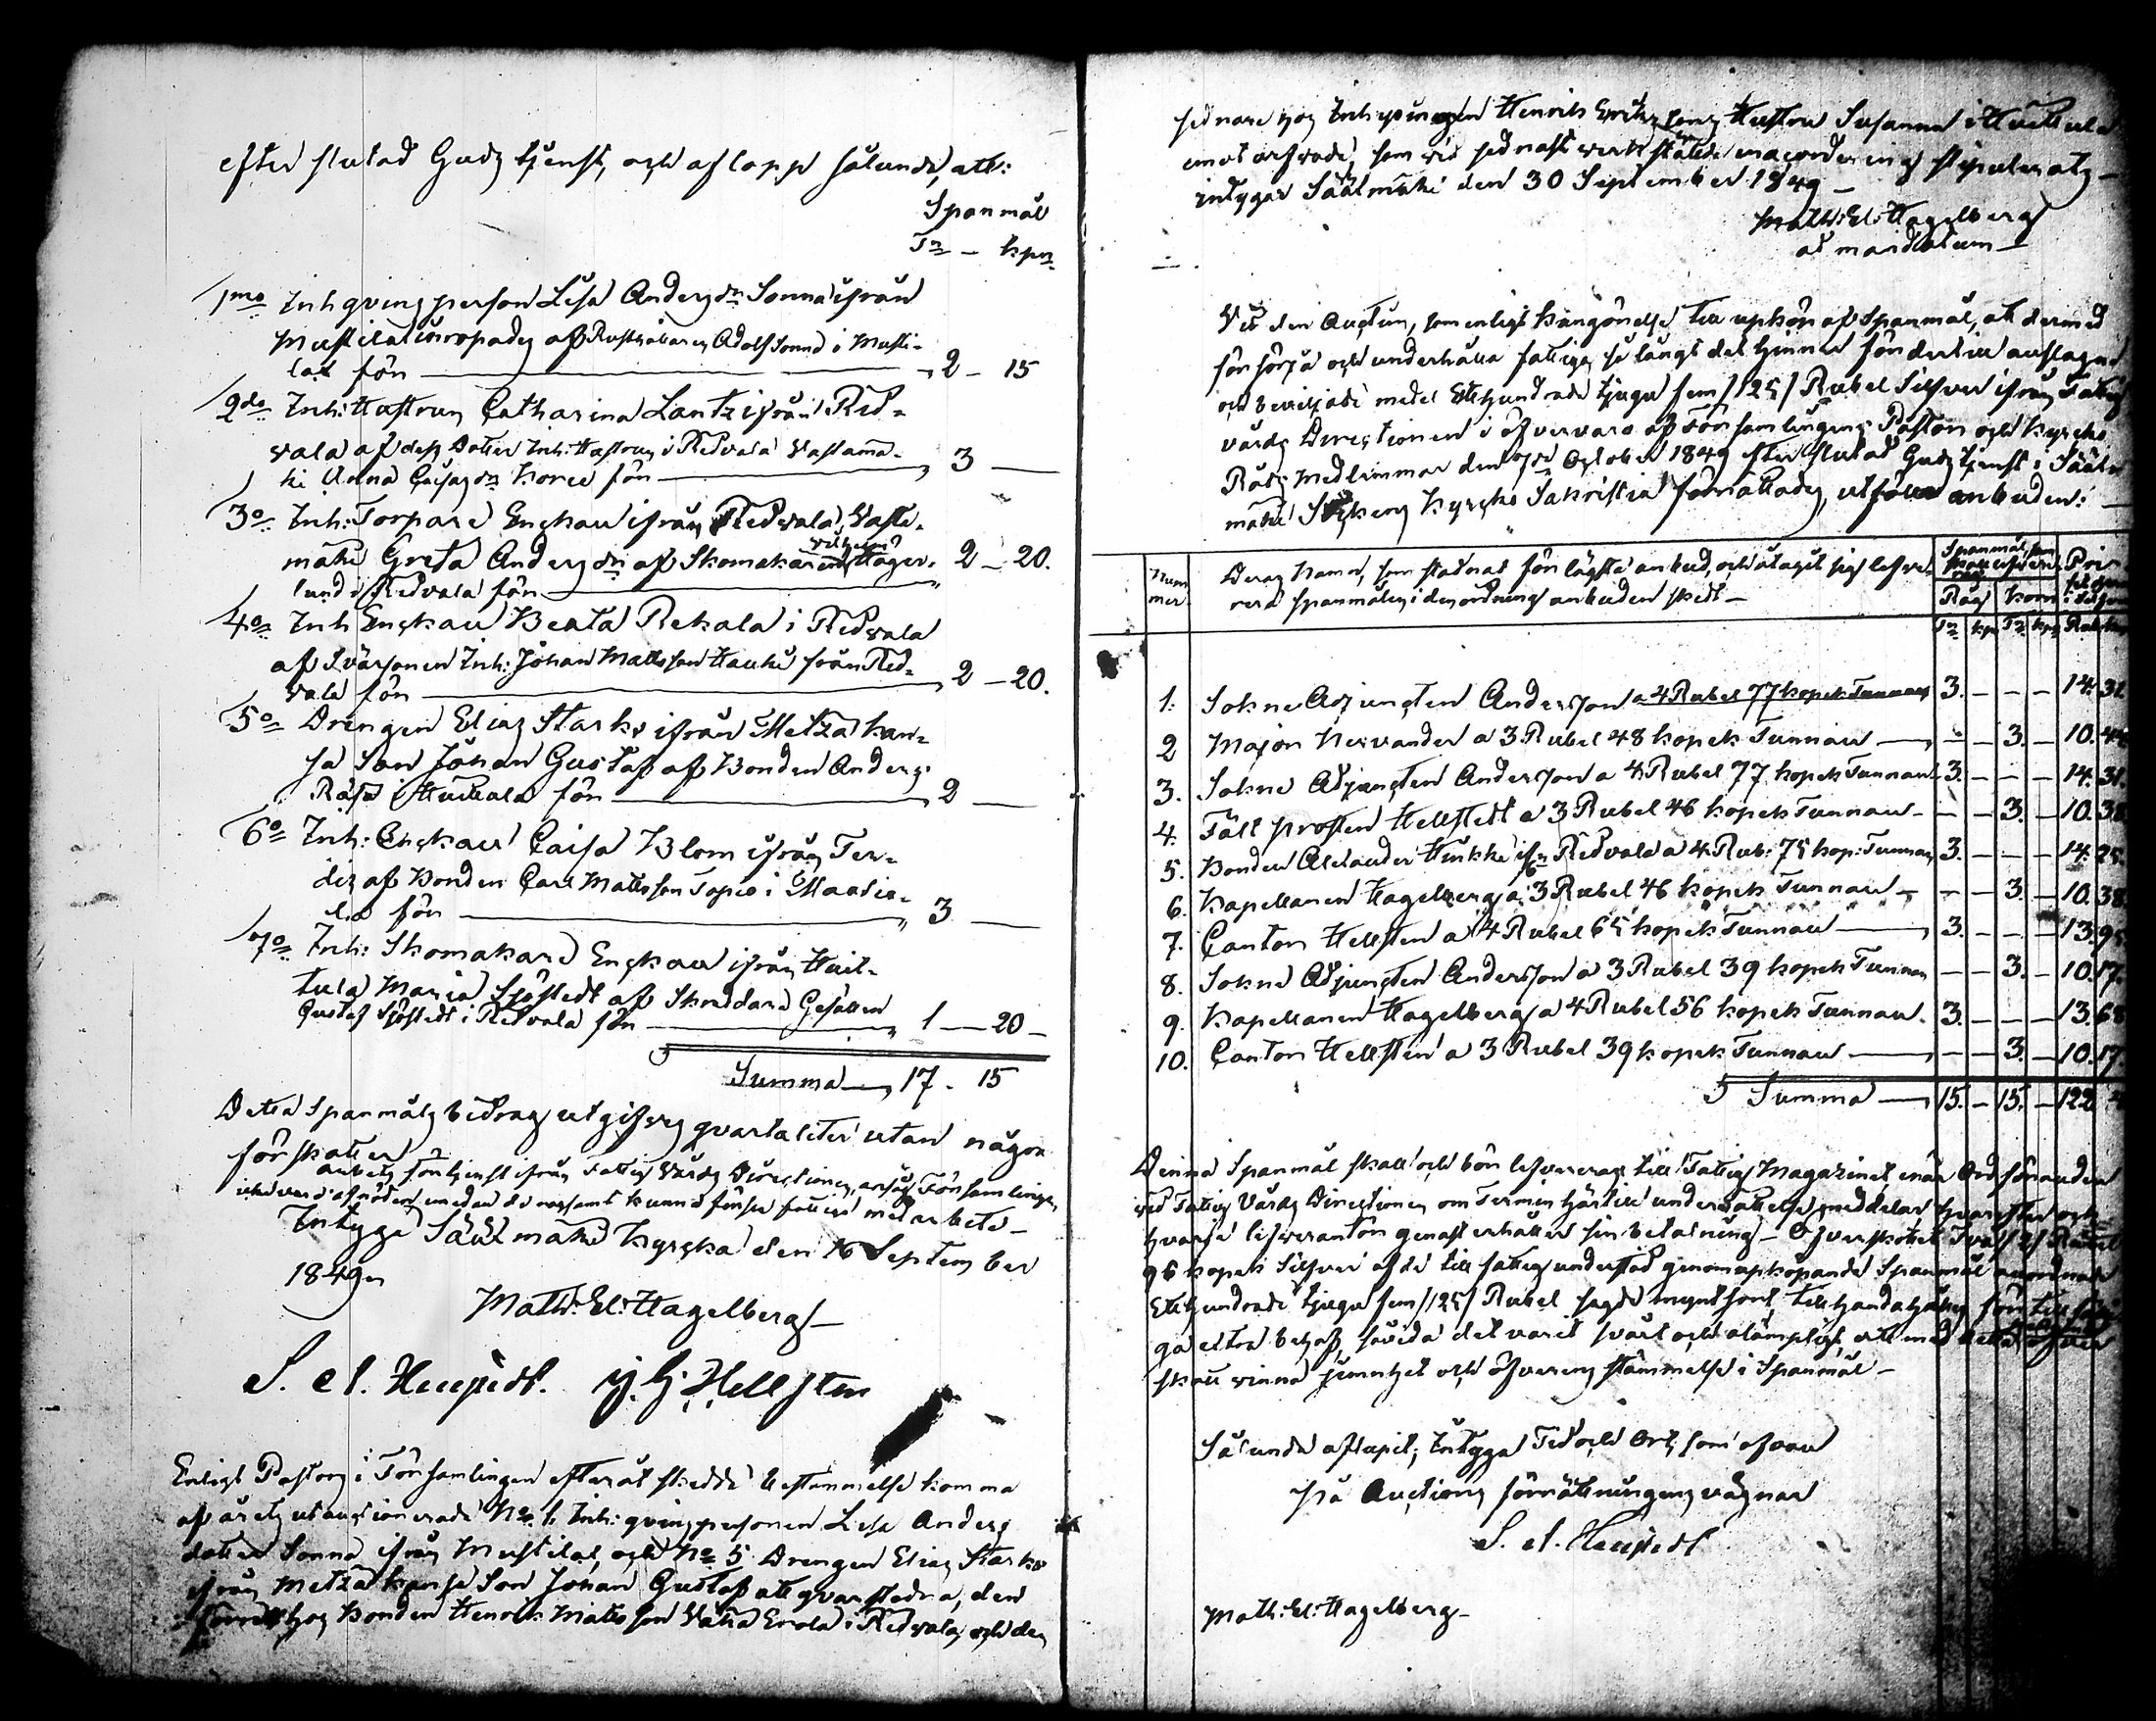 efter slutad Gudz tjenst, och aflopp sålunda, att:
Spanmål
Tn — kpr
1mo Inh qvinzperson Lisa Andersdr Sonna ifrån
Mustila inropades af Rusthållaren Adolf Sonni i Musti-
la för — 2 — 15
2do Inh: Hustrun Catharina Lantz ifrån Red-
vala af dess Dotter Inh: Hustrun i Redvala Vastamä-
ki Anna Caisa för — 3 —
3o Inh: Torpare Enckan ifrån Redvala, Vasta-
mäki Greta Andersdr af Skomakaren Vilhelm Häger-
lund i Redvala för — 2 — 20.
4o Inh Enckan Beata Rekola i Redvala
af Svärsonen Inh: Johan Mattsson Hauki från Red-
vala för — 2 — 20.
5o Drengen Elias Starks ifrån Metzä kan-
sa Son Johan Gustaf af Bonden Anders
i Huittula för — 2 —
6o Inh: Enckan Caisa Blom ifrån Ter-
dis af Bonden Carl Mattsson Tapio i
la för — 3 —
7o Inh: Skomakare Enckan ifrån Huit-
tula Maria Sjöstedt af Skräddare Gesällen
Gustaf Sjöstedt i Redvala för — 1 — 20 —
Summa — 17 - 15
Detta Spanmåls bidrag utgifves qvartaliter utan någon
förskott
arbets förtjenst ifrån Fattig Vårds Directionen, Församlingen
med arbete —
Intyga Sääxmäki Kyrcka den 16 September
1849
Math: El: Hagelberg —
S. A. Hellstedt. Hellsten
Enligt Pastors i Församlingen efteråt skedde bestämmelse komma
af årets utauctionerade No 1 Inh: qvinzpersonen Lisa Anders
dotter Sonna ifrån Mustila, och No 5 Drengen Elias Starks
ifrån Metzä kansa Son Johan Gustaf att qvarstadna, den
förre hos Bonden Henrik Mattsson Erola i Redvala, och den
sednare hos Inhysingen Henrik Hustru Susanna i Huittula
emot arfvode, som vid sednast verkstälde stipulerats —
intygar Sääxmäki den 30 September 1849 —
Math: El: Hagelberg
ad mandatum —
Vid den Auction, som enligt kungörelse till uphöp af Spanmål, att dermed
försörja och underhålla fattige så långt det hinner för dertill anslagne
och beviljade medel Etthundrade tjugu fem /125/ Rubel Silfver ifrån Fattig
vårds Directionen i öfvervaro af Församlingens Pastor och Kyrcko
Råds Medlemmar den 7de October 1849 efter slutad Gudztjenst i Sääx-
mäki Kyrcko Sakristia förrättades, utföllo anbuden:
Num
mer.
Deras Namn, som stadnat för lägsta anbud, och åtagit sig lefve-
rera spanmålen i den ordning anbuden skedt —
Råg Korn
Tn kpr Tn kpr Rub kop
1. Sokne Adjuncten Andersson a 4 Rubel 77 kopek Tunnan 3. — — — 14. 31.
2 Major Nervander a 3 Rubel 48 kopek Tunnan — — — 3. — 10. 44
3. Sokne Adjuncten Andersson a 4 Rubel 77 kopek Tunnan 3. — — — 14. 31.
4. Fält prosten Hellstedt a 3 Rubel 46 kopek Tunnan — — — 3. — 10. 38
5. Bonden Alexander Hinkki ifn Redvala a 4 Rub: 75 kop: Tunnan 3. — — — 14. 25.
6. Kapellanen Hagelberg a 3 Rubel 46 kopek Tunnan — — — 3. — 10. 38.
7. Cantor Hellsten a 4 Rubel 65 kopek Tunnan — 3. — — — 13. 95
8. Sokne Adjuncten Andersson a 3 Rubel 39 kopek Tunnan — — 3. — 10. 17.
9. Kapellanen Hagelberg a 4 Rubel 56 kopek Tunnan. 3. — — — 13. 68
10. Cantor Hellsten a 3 Rubel 39 kopek Tunnan — — — 3. — 10. 17.
Summa — 15. — 15. — 122
Denna Spanmål skall och bör lefvereras till Fattig Magazinet, när Ordföranden
vid Fattig Vårds Directionen om Termin härtill underrättelse meddelar hvarefter och
hvarje lefverantör genast erhåller sin betalning — Öfverskottet Två /2/ Rubel
96 kopek Silfver af de till fattig understöd genom uphöpande Spanmål anordnade
Etthundrade tjugu fem /125/ Rubel sagde myntsort, tillhandahålles för
ga extra behof, såvida det varit svårt och olämpligt, att med detta
skott vinna jemnhet och öfverensstämmelse i Spanmål —
Sålunda aflupit, Intyga Tid och Ort, som ofvan
På Auctions förrättningens vägnar
S. A. Hellstedt
Math: El: Hagelberg —